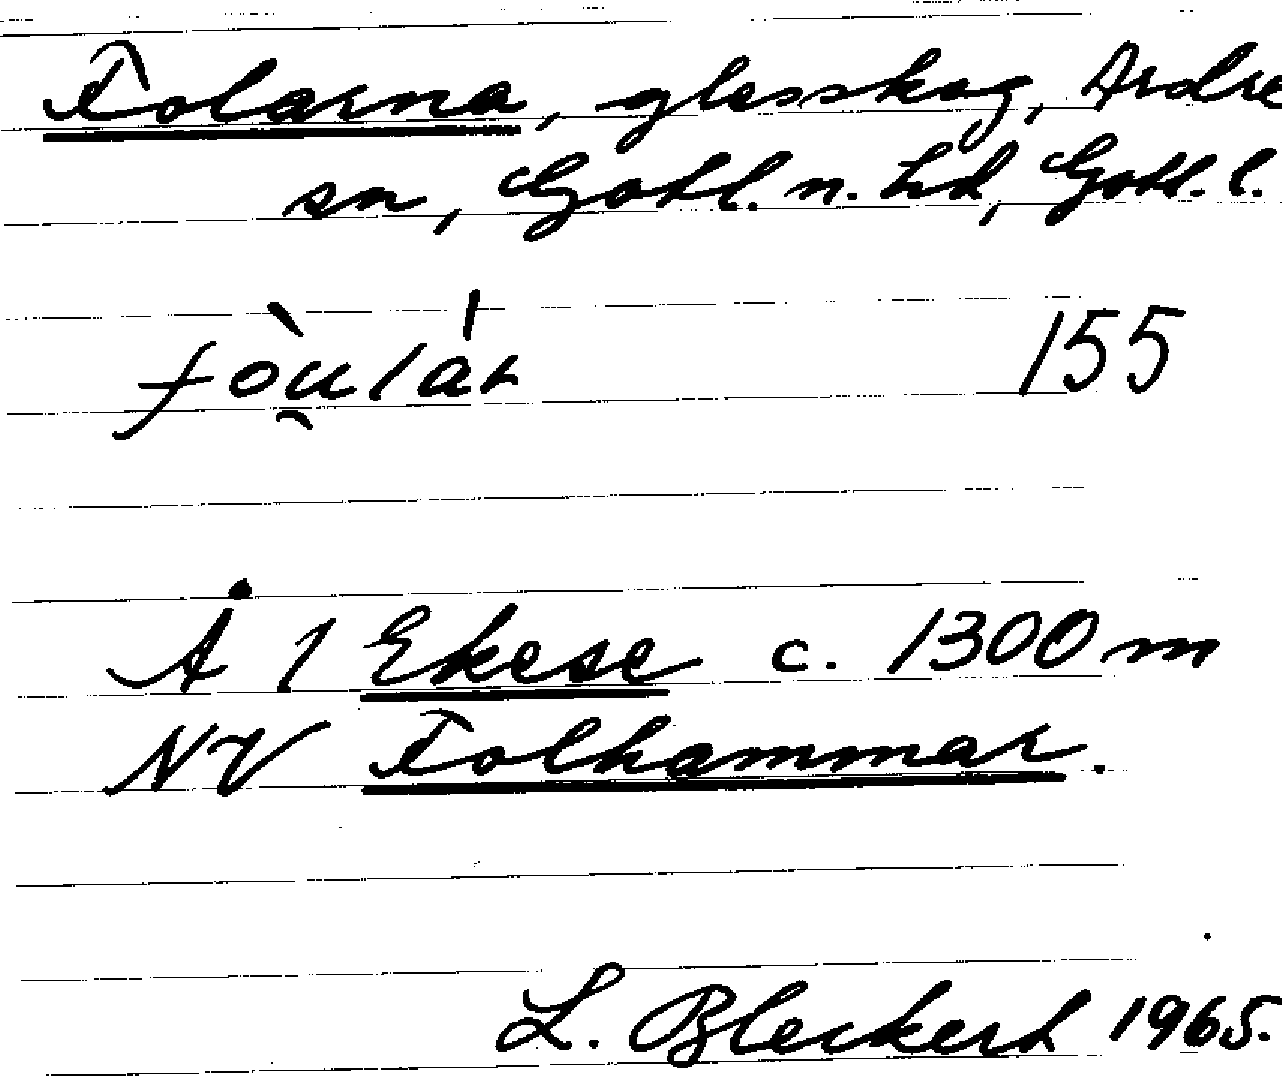 Folarna, glesskog, Ardre
sn, Gotl. n. hd, Gotl. l.
fòu̯la̍r 155
Å 1 Ekese c. 1300 m
NV Folhammar.
L. Bleckert 1965.